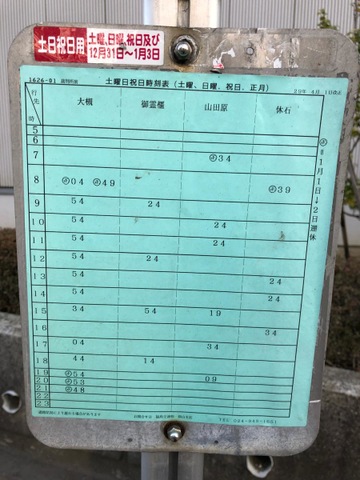 土日祝日用
土曜、日曜、祝日及び
12月31日〜1月3日
1626-01
土曜日祝日時刻表(土曜、日曜、祝日、正月)
29年 4月 1日改正
行先 時 大槻 御霊櫃 山田原 休石
5
6
7 ㊣34
8 ㊣04 ㊣49 ㊣39
9 54 24
10 54 24
11 54 24
12 54 24
13 54 24
14 54 24
15 34 54 19
16 34
17 04 34
18 44 14
19 ㊣54
20 ㊣53 09
21 ㊣48
22
23
㊣は1月1日→2日運休